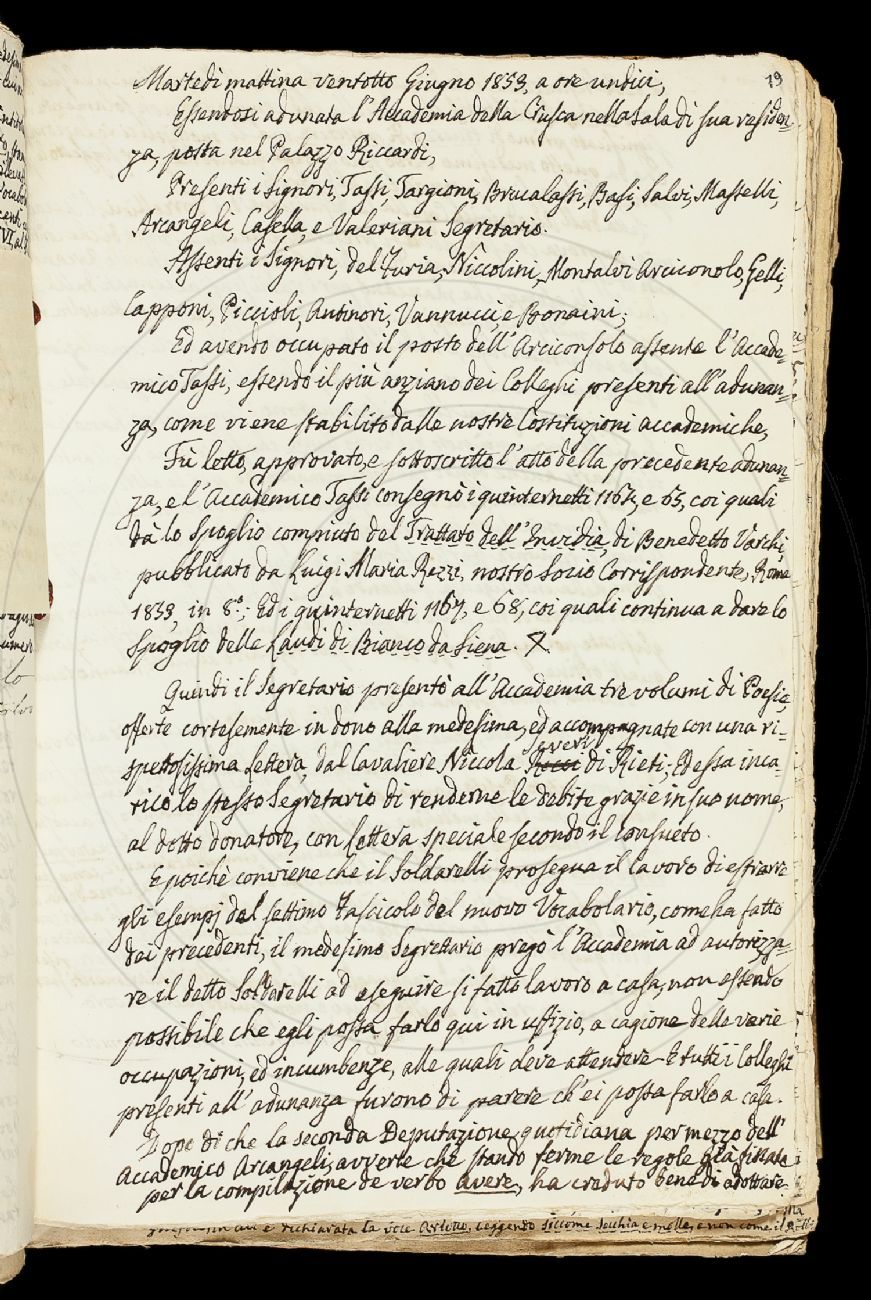 19
Martedì mattina ventotto Giugno 1853, a ore undici,
Essendosi adunata l'Accademia della Crusca nella Sala di sua residen=
za, posta nel Palazzo Riccardi,
Presenti i Signori, Tassi, Targioni, Brucalassi, Basi, Salvi, Masselli,
Arcangeli, Casella, e Valeriani Segretario.
Assenti i Signori, del Furia, Niccolini, Montalvi Arciconsolo, Gelli,
Capponi, Piccioli, Antinori, Vannucci, e Bonaini;
Ed avendo occupato il posto dell'Arciconsolo assente l'Accade=
mico Tassi, essendo il più anziano dei Colleghi presenti all'adunan=
za, come viene stabilito dalle nostre Costituzioni accademiche,
Fù letto, approvato, e sottoscritto l'atto della precedente adunan=
za, e l'Accademico Tassi consegnò i quinternetti 1164, e 65, coi quali
dà lo Spoglio compiuto del Trattato dell'Invidia, di Benedetto Varchi
pubblicato da Luigi Maria Rezzi, nostro Socio Corrispondente, Roma
1853, in 8.°; Ed i quinternetti 1167, e 68, coi quali continua a dare lo
Spoglio delle Laudi di Bianco da Siena.
Quindi il Segretario presentò all'Accademia tre volumi di Poesie,
offerte cortesemente in dono alla medesima, ed accompagnate con una ri=
spettosissima Lettera, dal Cavaliere Niccola Severi di Rieti; Ed essa inca=
ricò lo stesso Segretario di renderne le debite grazie in suo nome,
al dotto donatore, con Lettera speciale secondo il consueto.
E poichè conviene che il Soldarelli prosegua il lavoro di estrarre
gli esempj del settimo Fascicolo del nuovo Vocabolario, come ha fatto
dei precedenti, il medesimo Segretario pregò l'Accademia ad autorizza=
re il detto Soldarelli ad eseguire sì fatto lavoro a casa, non essendo
possibile che egli possa farlo qui in uffizio, a cagione delle varie
occupazioni, ed incumbenze, alle quali deve attendere. E tutti i Colleghi
presenti all'adunanza furono di parere ch'ei possa farlo a casa.
Dopo di che la seconda Deputazione quotidiana per mezzo dell'
Accademico Arcangeli, avverte che stando ferme le regole già fissate
per la compilazione de verbo avere, ha creduto bene di adottare
è richiarata la voce leggendo siccome Secchia e molle, e non come il